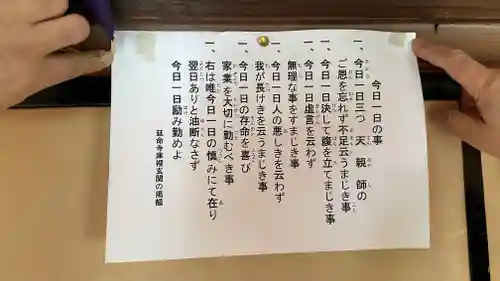 今日一日の事
一、今日一日三つ 天 親 師の
ご恩を忘れず不足云うまじき事
一、今日一日決して腹を立てまじき事
一、今日一日虚言を云わず
無理な事をすまじき事
一、今日一日人の悪しきを云わず
我が長けきを云うまじき事
一、今日一日の存命を喜び
家業を大切に勤むべき事
一、右は唯今日一日の慎みにて在り
翌日ありと油断なさず
今日一日励み勤めよ
延命寺庫裡玄関の掲額